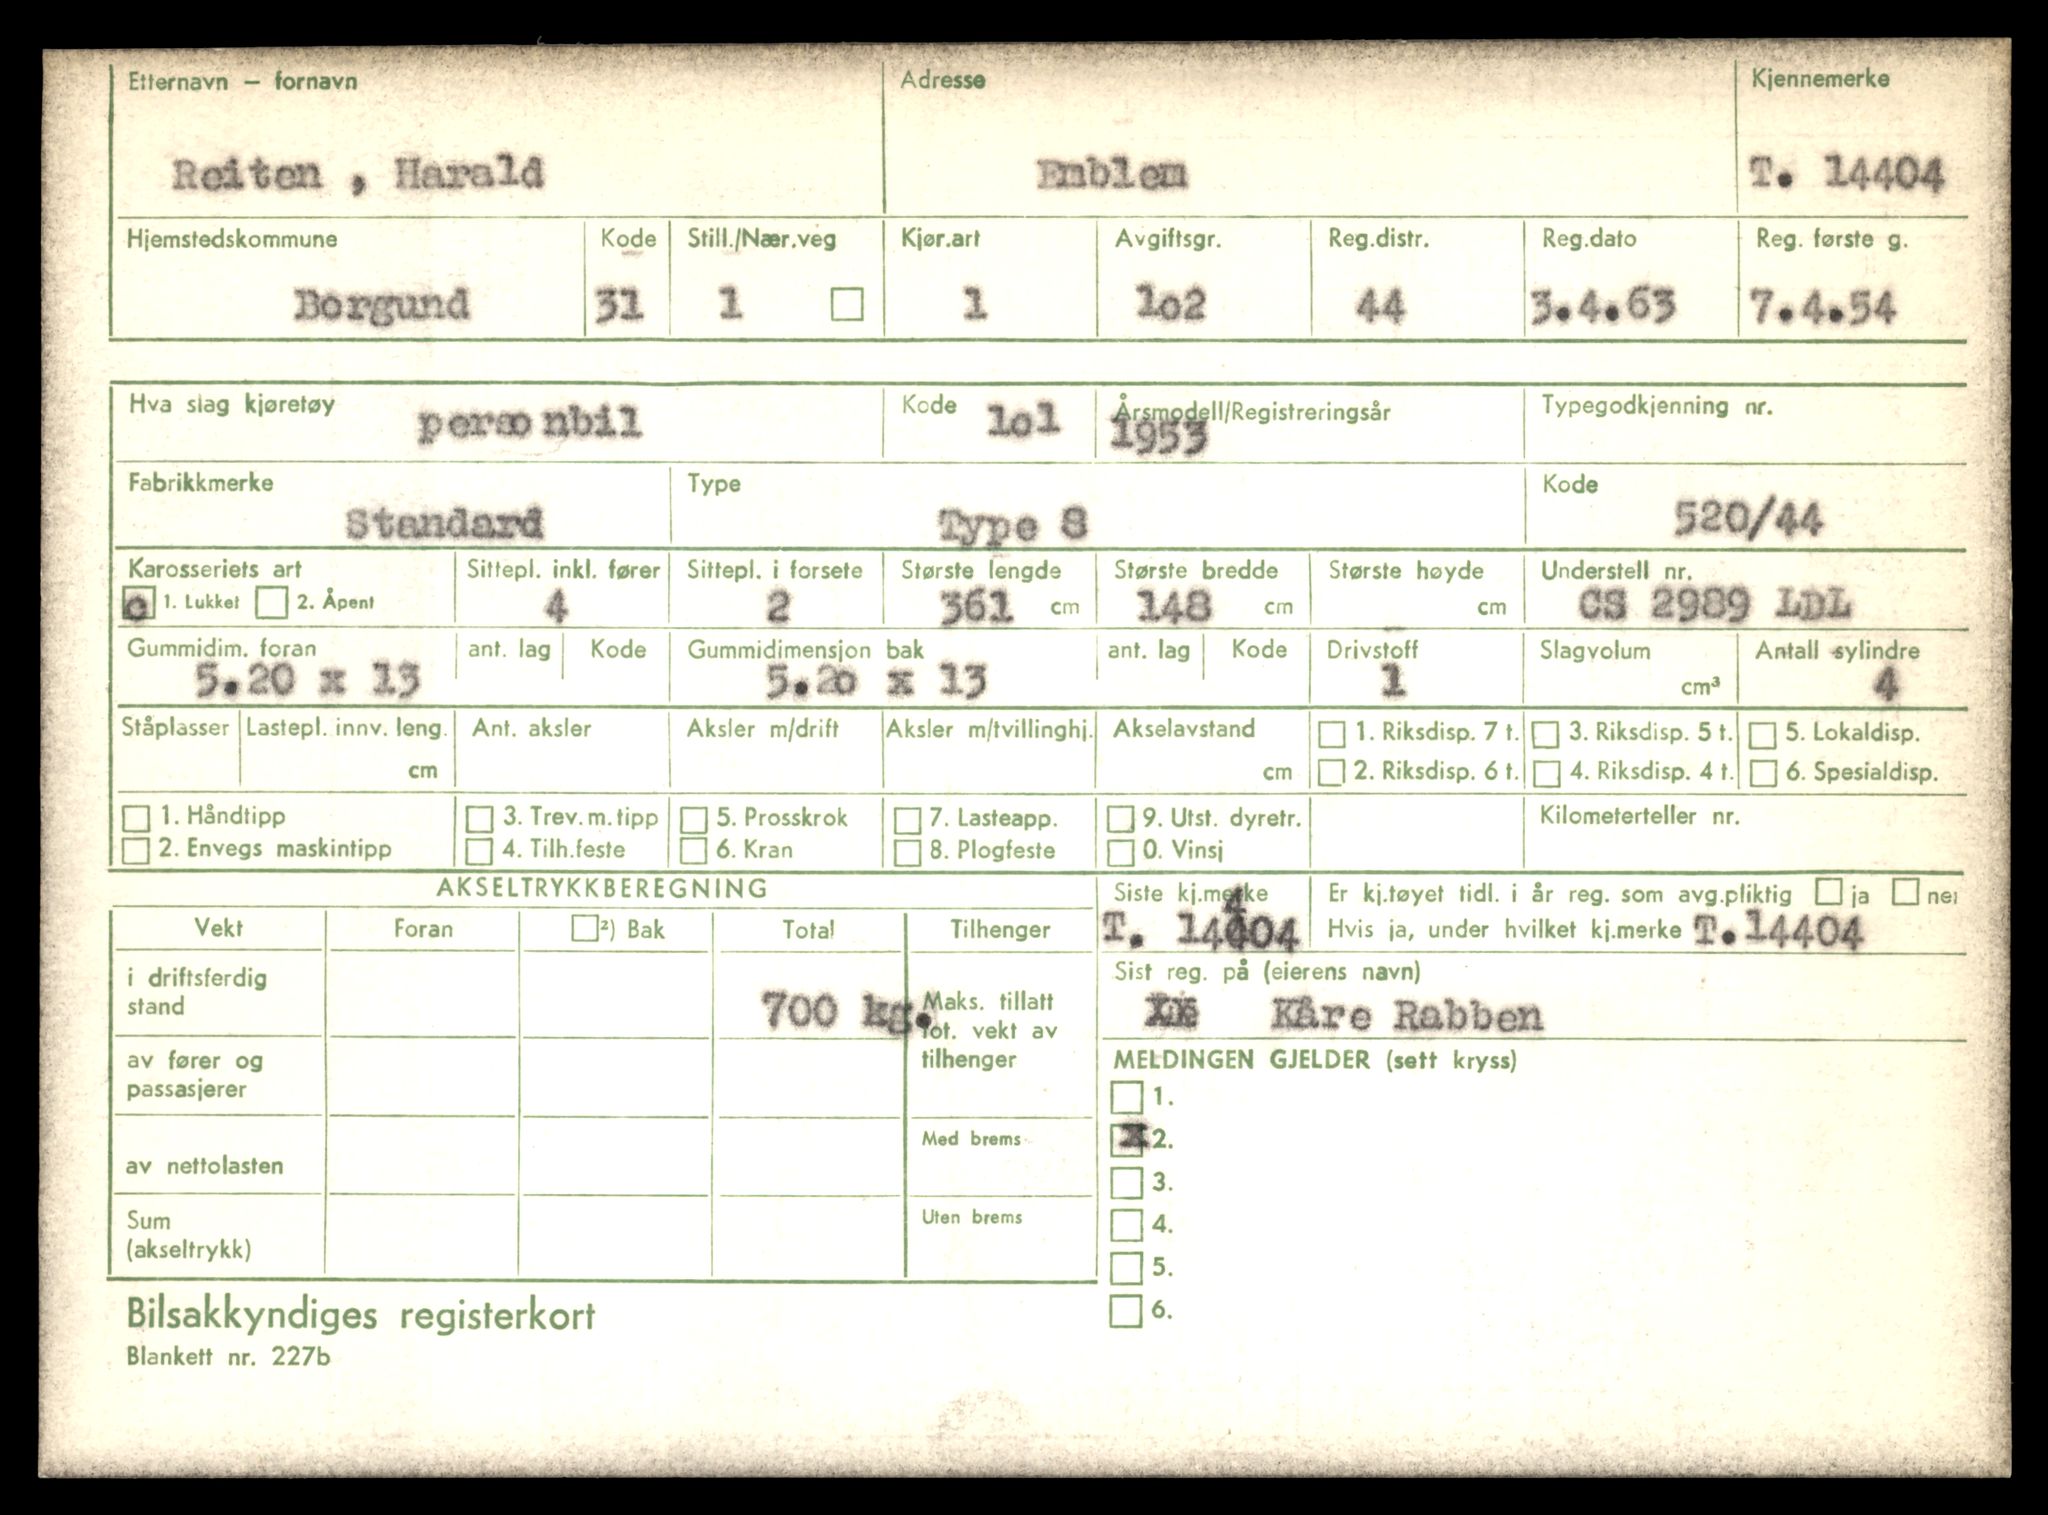 Etternavn – fornavn Adresse Kjennemerke
Reiten , Harald Emblem T. 14404
Hjemstedskommune Kode Still./Nær.veg Kjør.art Avgiftsgr. Reg.distr. Reg.dato Reg. første g.
Borgund 31 1 1 lo2 44 3.4.63 7.4.54
Hva slag kjøretøy Kode Årsmodell/Registreringsår Typegodkjenning nr.
personbil lol 1953
Fabrikkmerke Type Kode
Standard Type 8 520/44
Karosseriets art Sittepl. inkl. fører Sittepl. i forsete Største lengde Største bredde Største høyde Understell nr.
c 1. Lukket 2. Åpent 4 2 361 cm 148 cm cm CS 2989 LDL
Gummidim. foran ant. lag Kode Gummidimensjon bak ant. lag Kode Drivstoff Slagvolum Antall sylindre
5.20 x 13 5.2o x 13 1 cm³ 4
Ståplasser Lastepl. innv. leng. Ant. aksler Aksler m/drift Aksler m/tvillinghj. Akselavstand 1. Riksdisp. 7 t. 3. Riksdisp. 5 t. 5. Lokaldisp.
cm cm 2. Riksdisp. 6 t. 4. Riksdisp. 4 t. 6. Spesialdisp.
1. Håndtipp 3. Trev. m. tipp 5. Prosskrok 7. Lasteapp. 9. Utst. dyretr. Kilometerteller nr.
2. Envegs maskintipp 4. Tilh.feste 6. Kran 8. Plogfeste 0. Vinsj
AKSELTRYKKBEREGNING Siste kj.merke Er kj.tøyet tidl. i år reg. som avg.pliktig ja nei
Vekt Foran ²) Bak Total Tilhenger T. 14404 Hvis ja, under hvilket kj.merke T.14404
i driftsferdig Sist reg. på (eierens navn)
stand 700 kg. Maks. tillatt Kåre Rabben
tot. vekt av
av fører og tilhenger MELDINGEN GJELDER (sett kryss)
passasjerer 1.
Med brems x 2.
av nettolasten 3.
Sum Uten brems 4.
(akseltrykk) 5.
Bilsakkyndiges registerkort 6.
Blankett nr. 227b